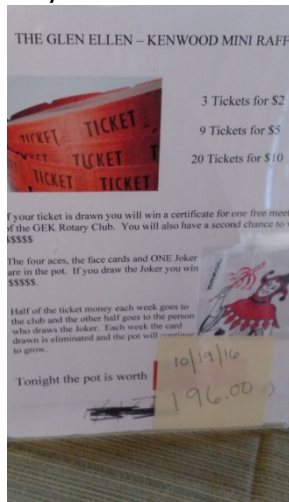 THE GLEN ELLEN – KENWOOD MINI RAFF
TICKET TICKET
TICKET
TICKET TICKET
3 Tickets for $2
9 Tickets for $5
20 Tickets for $10
f your ticket is drawn you will win a certificate for one free meet
of the GEK Rotary Club. You will also have a second chance to
$$$$$
The four aces, the face cards and ONE Joker
are in the pot. If you draw the Joker you win
$$$$$.
Half of the ticket money each week goes to
the club and the other half goes to the person
who draws the Joker. Each week the card
drawn is eliminated and the pot will continue
to grow.
10/19/16
Tonight the pot is worth
196.00